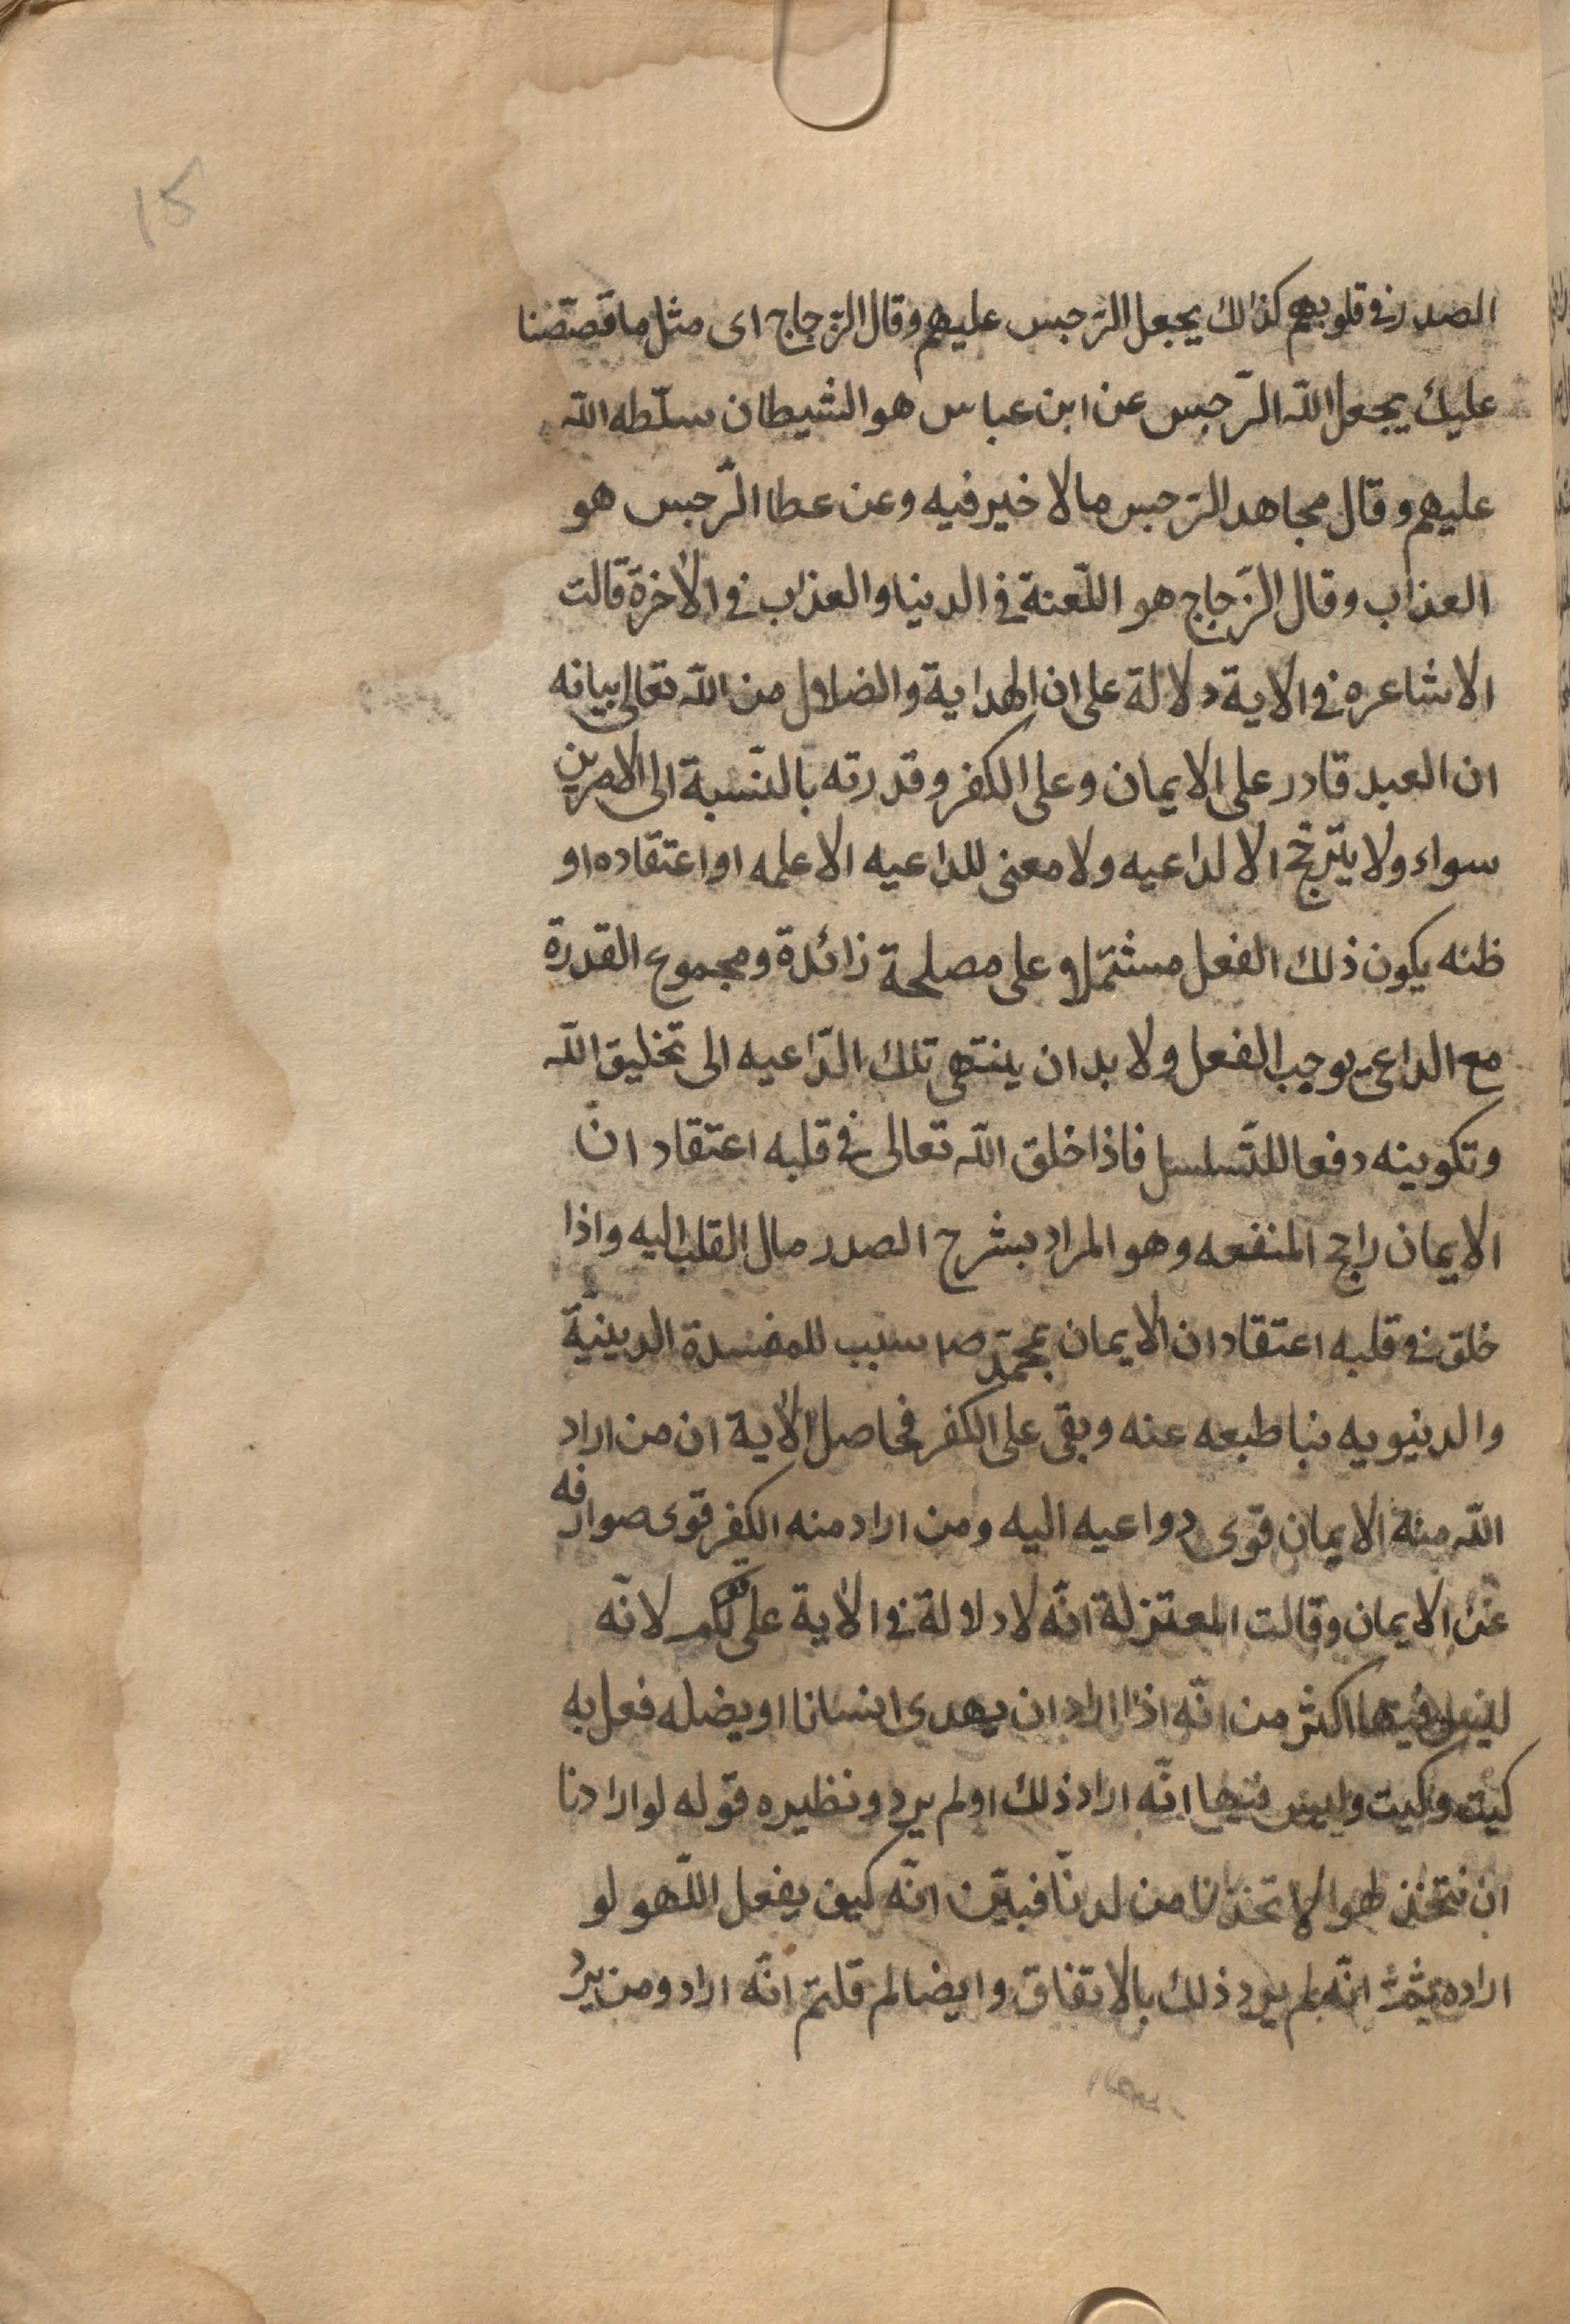 15
الصدر في قلوبهم كذالك يجعل الرّجس عليهم وقال الزّجاج اى مثل ما قصّصنا
عليك يجعل اللّه الرّجس عن ابن عباس هو الشيطان سلّطه اللّه
عليهم وقال مجاهد الرّجس مالا خير فيه وعن عطا الرّجس هو
العذاب وقال الزّجاج هو اللّعنة في الدينا والعذاب في الاخرة قالت
الاشاعره في الاية دلالة على ان الهداية والضلال من اللّه تعالى بيانه
ان العبد قادر على الايمان وعلى الكفر وقدرته بالنّسبة الى الامرين
سواء ولا يترّجح الا لداعيه ولا معنى للداعيه الا علمه او اعتقاده او
ظنه يكون ذلك الفعل مشتملا على مصلحة زائدة ومجموع القدرة
مع الداعى يوجب الفعل ولا بد ان ينتهى تلك الدّاعيه الى تخليق اللّه
وتكوينه دفعا للتّسلسل فاذا خلق اللّه تعالى في قلبه اعتقاد انّ
الايمان راجح المنفعه وهو المراد بشرح الصدر مال القلب اليه واذا
خلق في قلبه اعتقاد ان الايمان بمحمّد ص سبب للمفسدة الدينيّة
والدنيويه نبا طبعه عنه وبقى على الكفر فحاصل الاية ان من اراد
اللّه منه الايمان قوّى دواعيه اليه ومن اراد منه الكفر قوى صوارفه
عن الايمان وقالت المعتزلة انّه لا دلالة في الاية على لانّه
ليس فيها اكثر من انّه اذا اراد ان يهدى انسانا او يضله فعل به
كيت وكيت وليس فيها انّه اراد ذلك او لم يرد ونظيره قوله لو اردنا
ان نتخذ لهوا لاتخذنا من لدنّا فبيّن انّه كيف يفعل اللّهو لو
اراده انّه لم يرد ذلك بالاتفاق وايضا لم قلتم انّه اراد ومن يرد